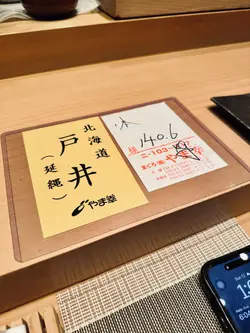 北海道
戸井
(延縄)
やま幸
140.6
ニ-103
まぐろ問屋
やま幸